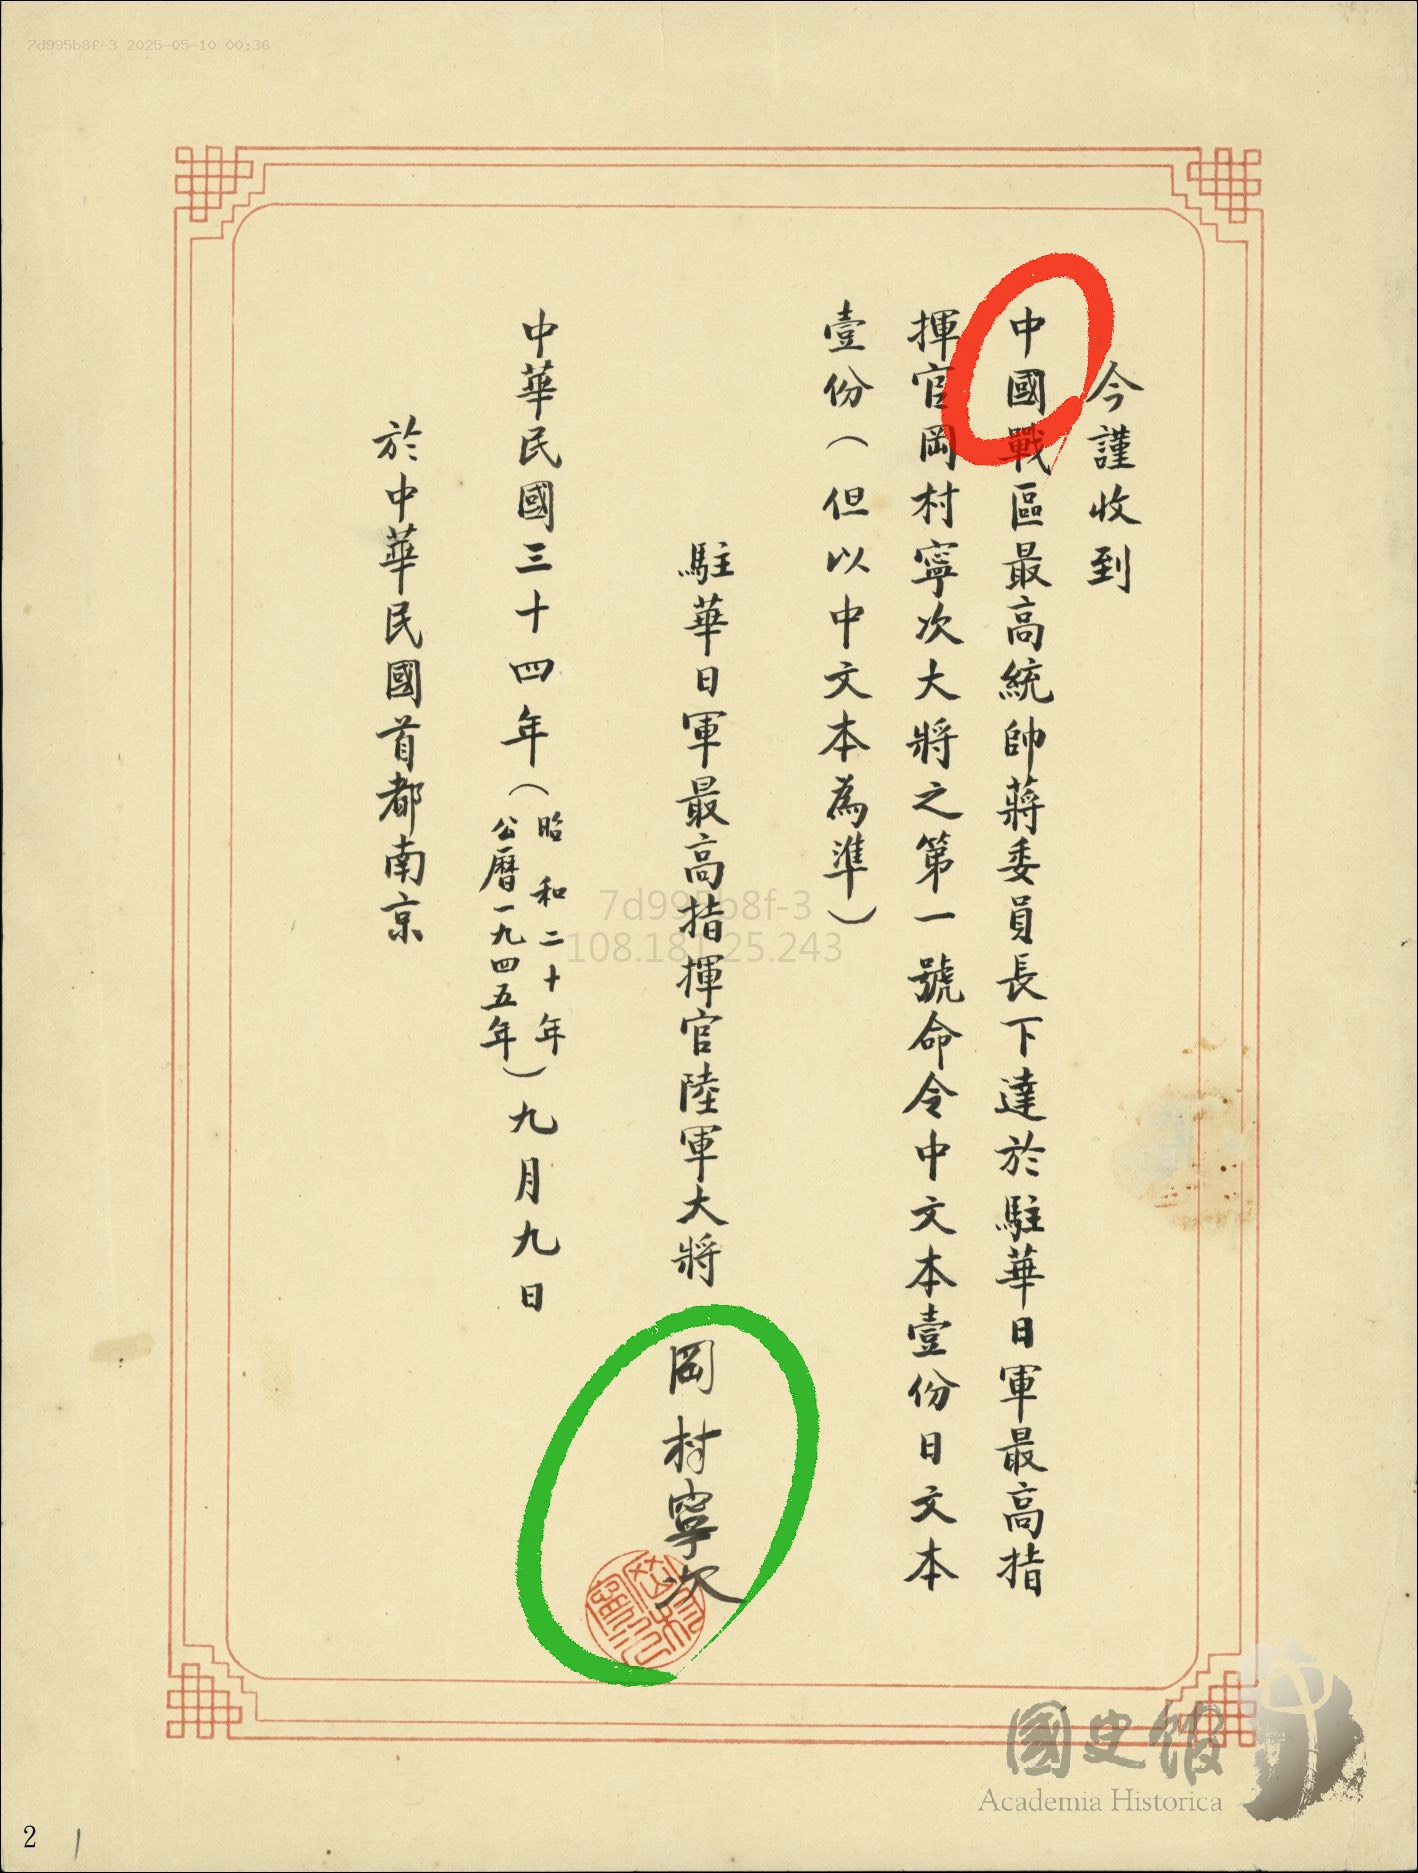 7d995b8f-3 2025-05-10 00:36
今謹收到
中國戰區最高統帥蔣委員長下達於駐華日軍最高指
揮官岡村寧次大將之第一號命令中文本壹份日文本
壹份（但以中文本為準）
駐華日軍最高指揮官陸軍大將 岡村寧次
中華民國三十四年（昭和二十年
公曆一九四五年）九月九日
於中華民國首都南京
7d995b8f-3
108.181.25.243
國史館
Academia Historica
2